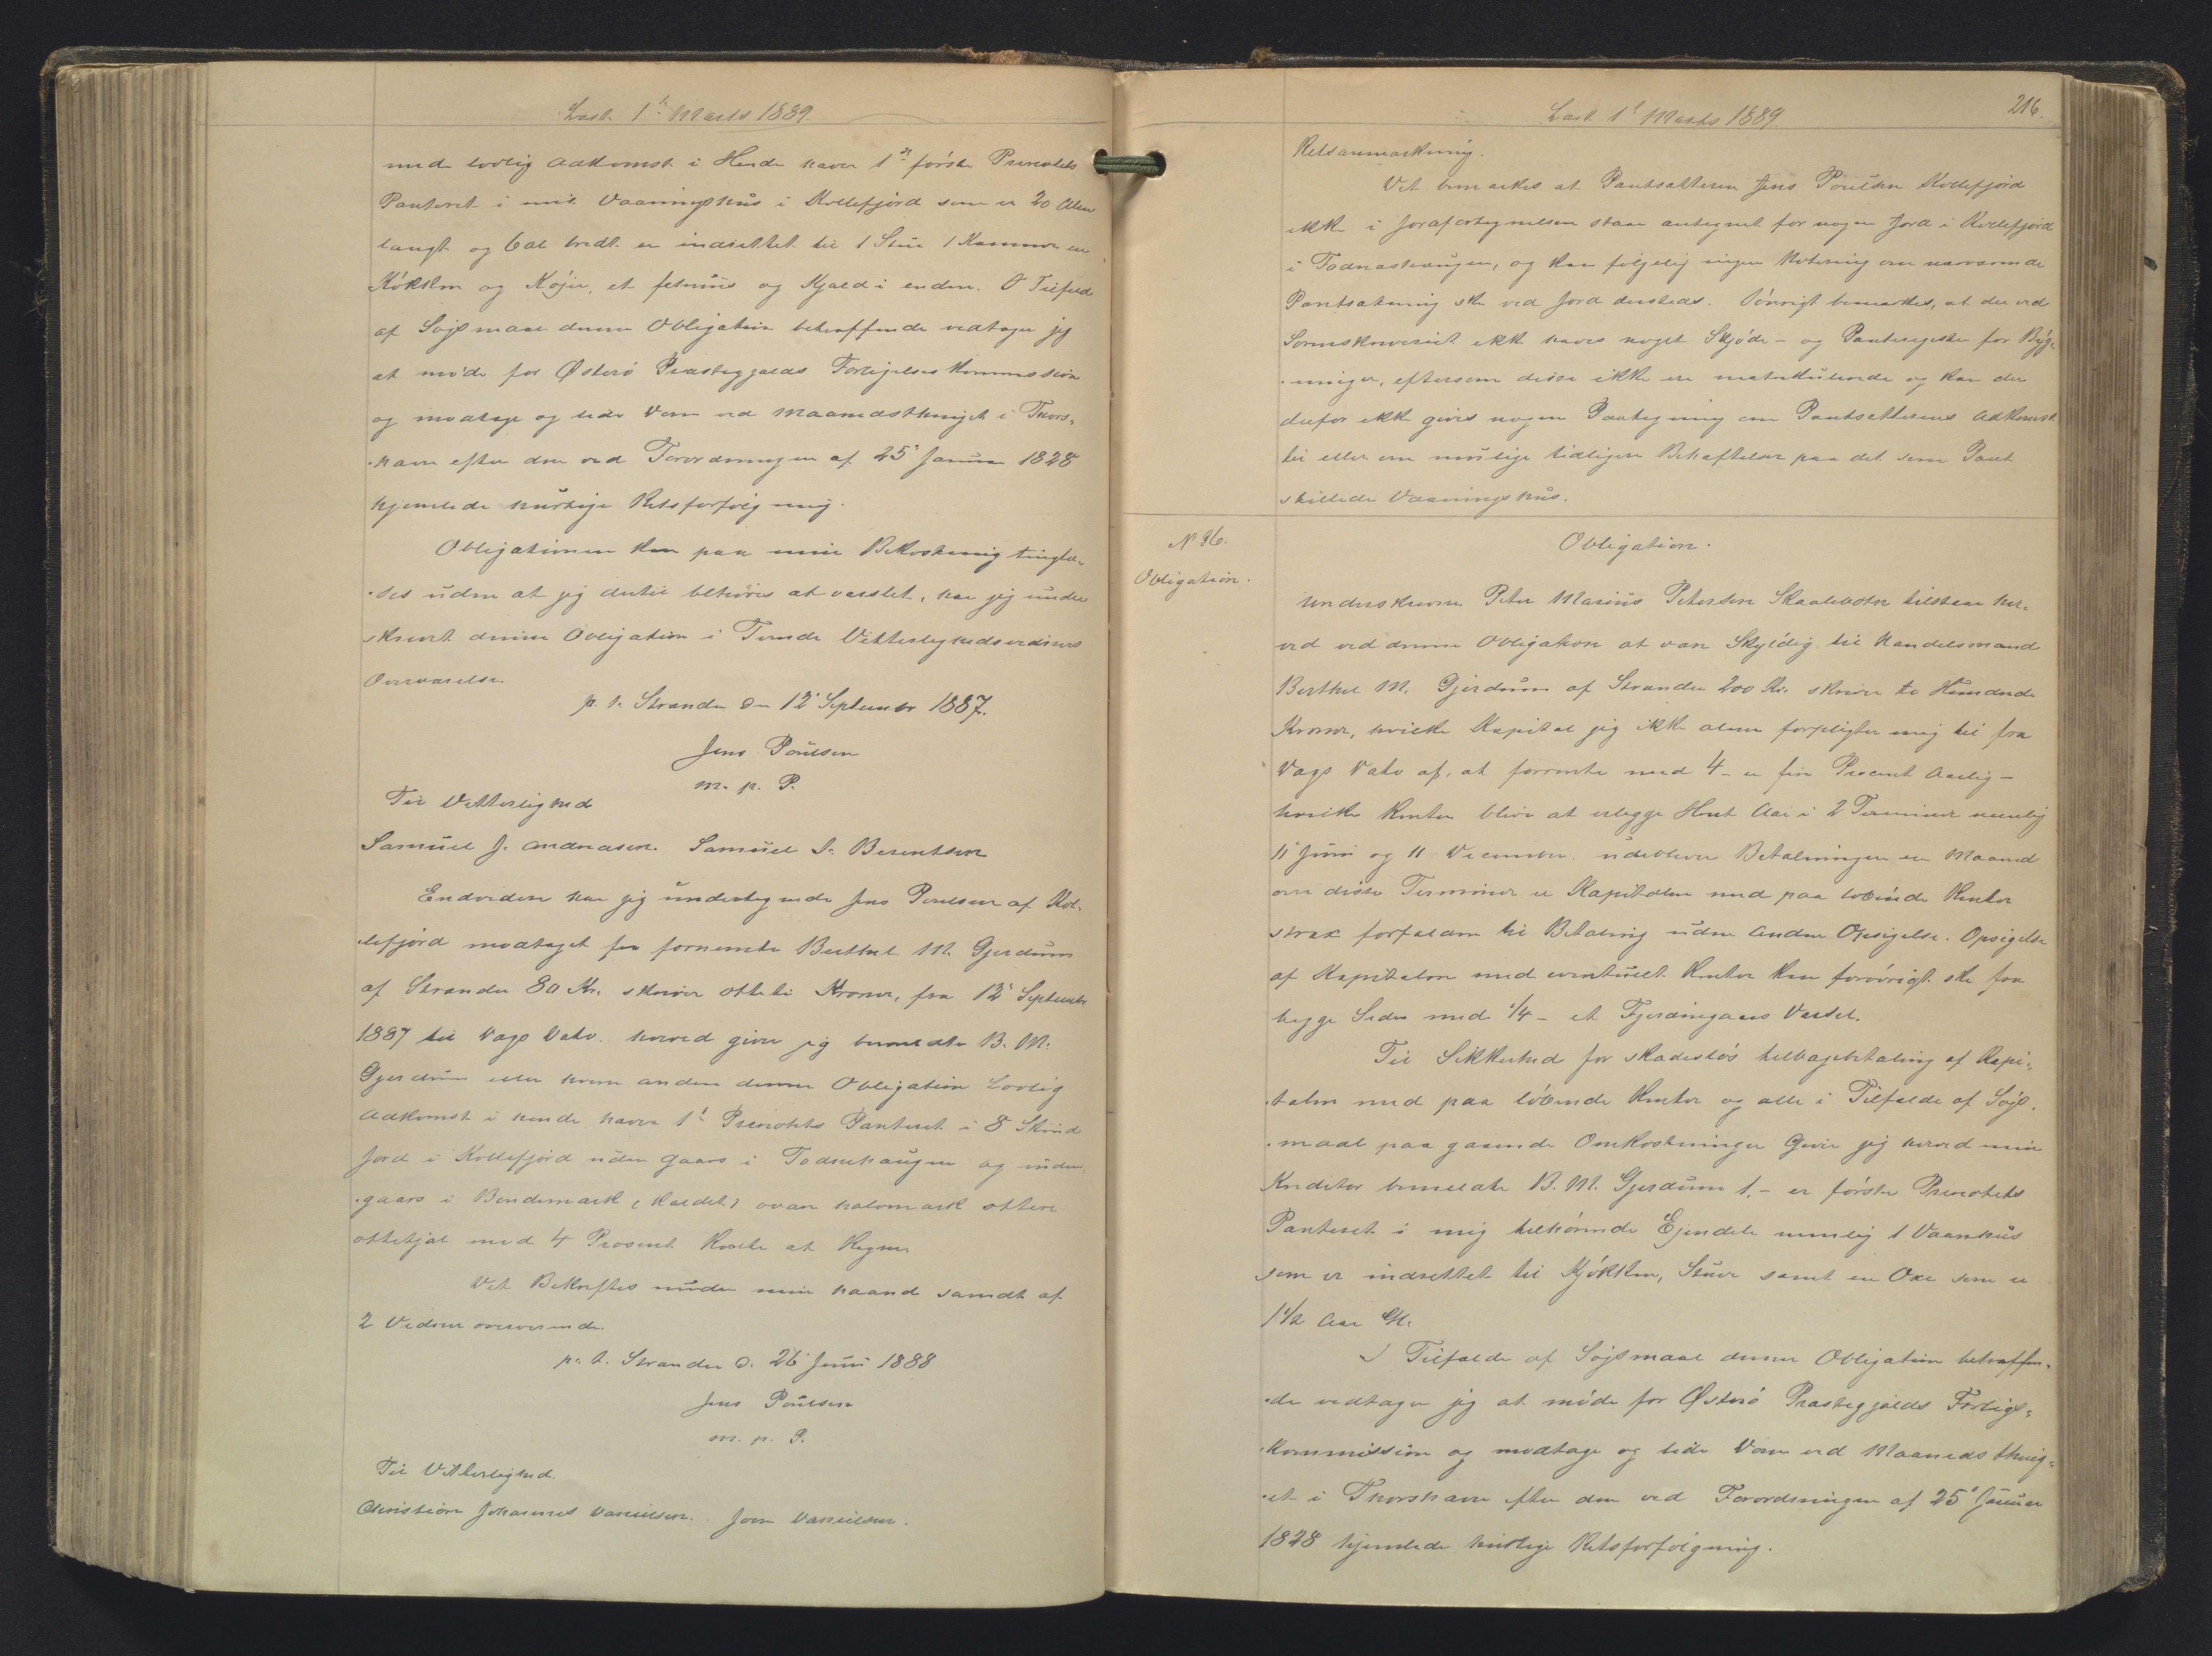 Læst 1' Marts 1889.
med lovlig Adkomst i Hende haver 1ste første Prioritets
Panteret i mit Vaaningshus i Kollefjord som er 20 Alen
langt og 6 al bredt er indrettet til 1 Stue 1 Kammer en
Kökken og Kojer, et fehuus og Kjald i enden. I Tilfeld
af Søgsmaal denne Obligation betræffende vedtager jeg
at möde for Østerö Præstegjælds Forligelses Kommission
og modtage og lide Dom ved Maanedsthinget i Thors-
-havn efter den ved Forordningen af 25' Januar 1828
hjemlede hurtige Retsforfølgning.
Obligationen kan paa min Bekostning tinglæ-
-ses uden at jeg dertil behöves at varslet, har jeg under
skrevet denne Obligation i Tvende Vitterlighedsvidners
Overværelse.
p. t. Strander den 12' September 1887.
Jens Poulsen
m. p. P.
Til Vitterlighed
Samuel J. Andreasen. Samuel S. Berentsen
Endvidere har jeg undertegnede Jens Poulsen af Kol-
-lefjord modtaget fra fornevnte Berthel M. Gjerdum
af Strander 80 Kr. skriver otteti Kroner, fra 12' September
1887 til Dags Dato. hvorved giver jeg bemeldte B. M.
Gjerdum eller hvem anden denne Obligation Lovlig
Adkomst i hende haver 1' Prioritets Panteret i 8 Skind
Jord i Kollefjord uden gaars i Todnehaugen og inden-
-gaars i Bondemark (Kaldet) ovan halvmark
med 4 Procent Rente at Regne
Det Bekræftes under min haand samdt af
2 Vidner overværende.
p. t. Strander d. 26' Juni 1888
Jens Poulsen
m. p. P.
Til Vitterlighed.
Christian Johannes Danielsen. Joen Danielsen.
Læst 1' Marts 1889.
216.
Retsanmærkning.
Det bemærkes at Pantsætteren Jens Poulsen Kollefjord
ikke i Jordfortegnelsen staar antegnet for nogen Jord i Kollefjord
i Todnashaugen, og kan følgelig ingen Notering om nærværende
Pantsætning ske ved Jord dersteds. Iövrigt bemærkes, at der ved
Sorenskriveriet ikke haves noget Skjöde- og Panteregister for Byg-
-ninger, eftersom disse ikke ere matrikulerede og kan der
derfor ikke gives nogen Paategning om Pantsætterens Adkomst
til eller om mulige tidligere Behæftelser paa det som Pant
stillede Vaaningshus.
No 36.
Obligation.
Obligation.
Underskreven Peter Marius Petersen Skaalebotn tilstaar her-
ved ved denne Obligation at være Skyldig til Handelsmand
Berthel M. Gjerdum af Strander 200 Kr. skriver to Hundrede
Kroner, hvilke Kapital jeg ikke alene forpligter mig til fra
Dags Dato af, at forrente med 4 - er fire Procent Aarlig -
hvilke Renter bliver at erlegge Hvert Aar i 2 Terminer nemlig
11' Juni og 11 December. udebliver Betalningen en Maaned
over disse Terminer er Kapitalen med paa löbende Renter
strax forfalden til Betaling uden Anden Opsigelse. Opsigelse
af Kapitalen med eventuelt Renter kan forövrigt ske fra
begge Sider med 1/4 - et Fjerdingaars Varsel.
Til Sikkerhed for skadeslös tilbagebetaling af Kapi-
-talen med paa löbende Renter og alle i Tilfælde af Søgs-
-maal paa gaaende Omkostninger Giver jeg herved min
Kreditor bemeldte B. M. Gjerdum 1. - er første Prioritets
Panteret i mig tilhörende Ejendele nemlig 1 Vaanhus
som er indrettet til Kjökken, Stuer samt en Oxe som er
1 1/2 Aar Gl.
I Tilfælde af Søgsmaal denne Obligation betræffen-
-de vedtager jeg at möde for Østerö Præstegjælds Forligs-
-kommission og modtage og lide Dom ved Maaneds thing-
-et i Thorshavn efter den ved Forordningen af 25' Januar
1828 hjemlede hurtige Retsforfölgning.